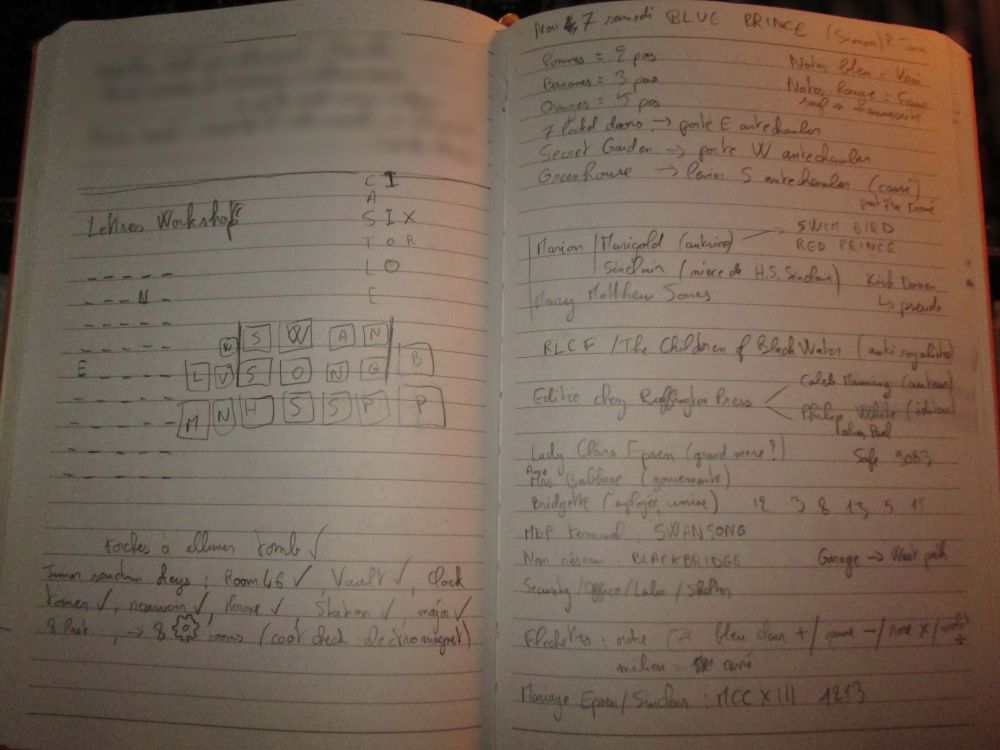 C I
A
Lettres Workshop
S I X
T O R
L O
E
N
E
W S W A N
L V S O N G B
M N H S S P P
torches à allumer tomb ✓
Inner sanctum keys : Room 46 ✓ Vault ✓, Clock
tower ✓, reservoir ✓, throne ✓ Station ✓, major ✓
8 → 8 rooms (coat check electromagnet)
Nov 7 samedi BLUE PRINCE (Simon)
Pommes = 2 pas
Notes bleu = Vrai
Bananes = 3 pas
Notes Rouge = Faux
Oranges = 5 pas
7 locked doors → porte E antechamber
Secret Garden → porte W antechamber
Greenhouse → levier S antechamber (cassé)
Marion Marigold (autrice)
SWIM BIRD
RED PRINCE
Sinclair (nièce de H.S. Sinclair)
Mary Matthew Jones
↳ pseudo
RLCF / The Children of Black Water (anti royaliste)
Editée chez Ruffington Press
Caleb Manning (auteur)
Philip White
Lady Clara Epsen (grand mère ?)
Safe
Mrs Babbage (gouvernante)
Bridgette
12 3 8 13 5 15
MDP terminal : SWANSONG
Nom réseau : BLACKBRIDGE
Garage → West path
Security / Office / Labo / Shelter
Flechettes : ordre bleu clair + / jaune - / rose x / violet ÷
milieu = carré
Mariage Epsen / Sinclair : MCCXIII 1213